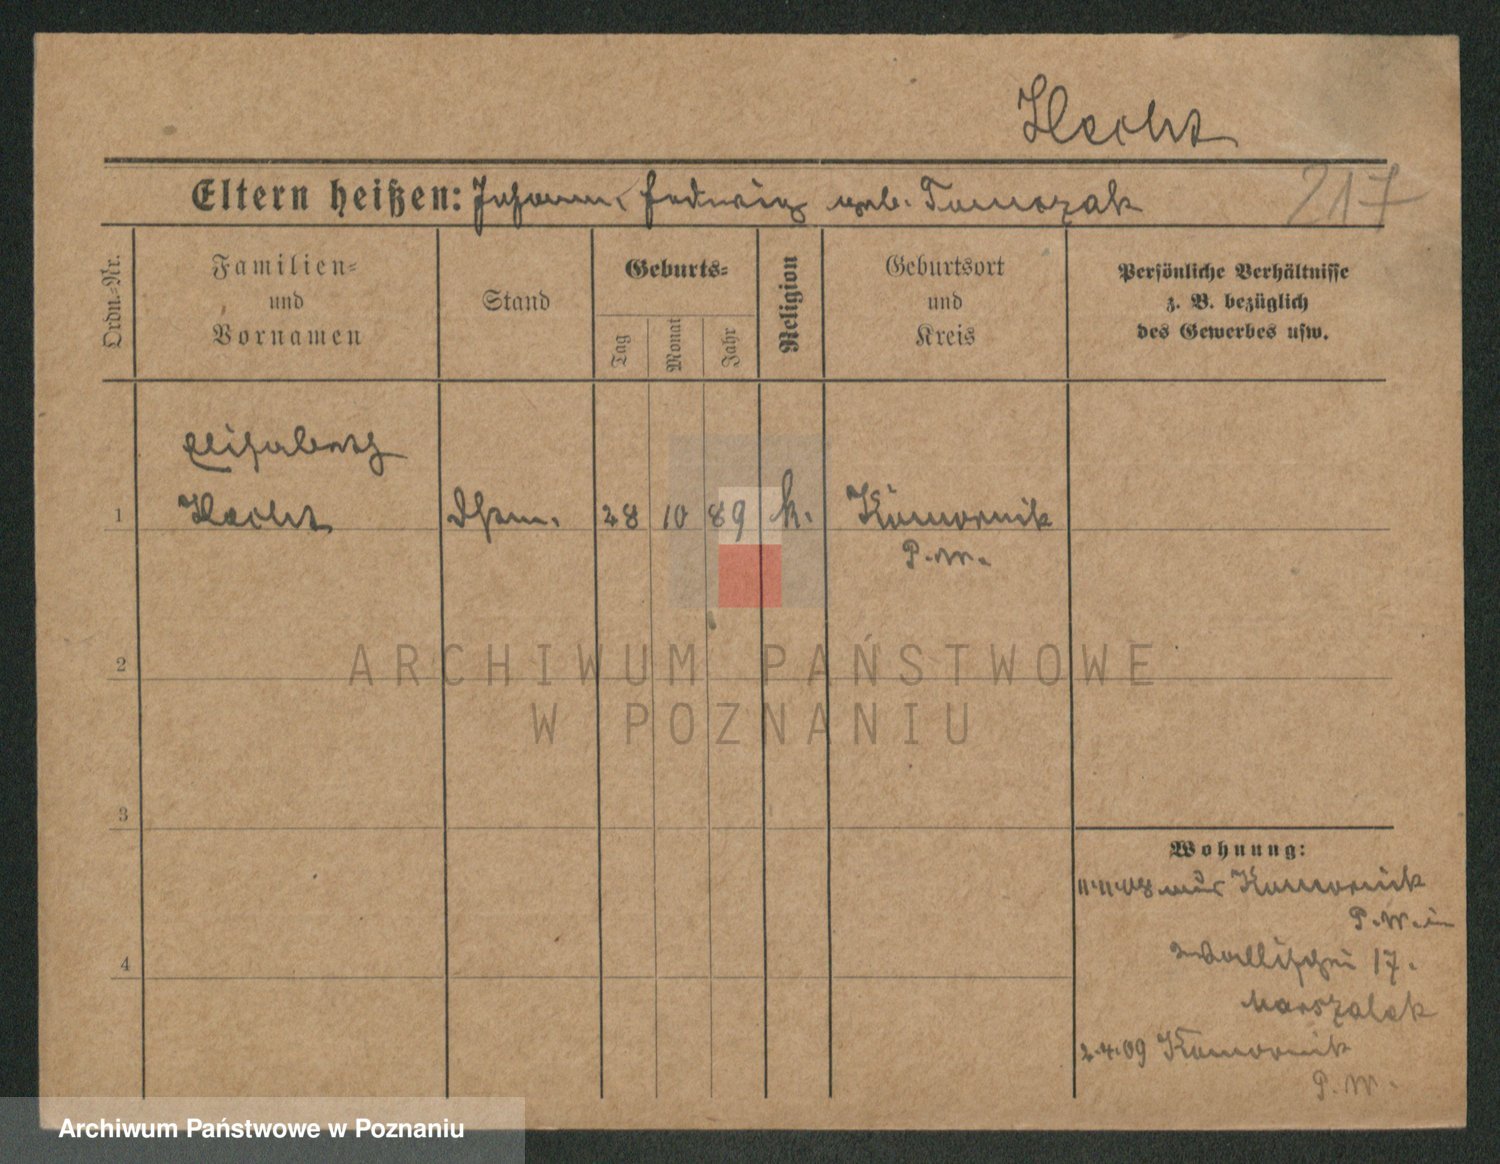 Hecht
217
Eltern heißen: Johann, Hedwig geb. Tomczak
Ordn.-Nr.
Familien-
und
Vornamen
Stand
Geburts-
Tag
Monat
Jahr
Religion
Geburtsort
und
Kreis
Persönliche Verhältnisse
z. B. bezüglich
des Gewerbes usw.
Elisabeth
1 Hecht 28 10 89 k. Komornik
P. W.
2
3
4
Wohnung:
11.11.08 aus Komornik
P. W. in
Wallischei 17.
Marszalek
2.4.09 Komornik
P. W.
ARCHIWUM PAŃSTWOWE
W POZNANIU
Archiwum Państwowe w Poznaniu